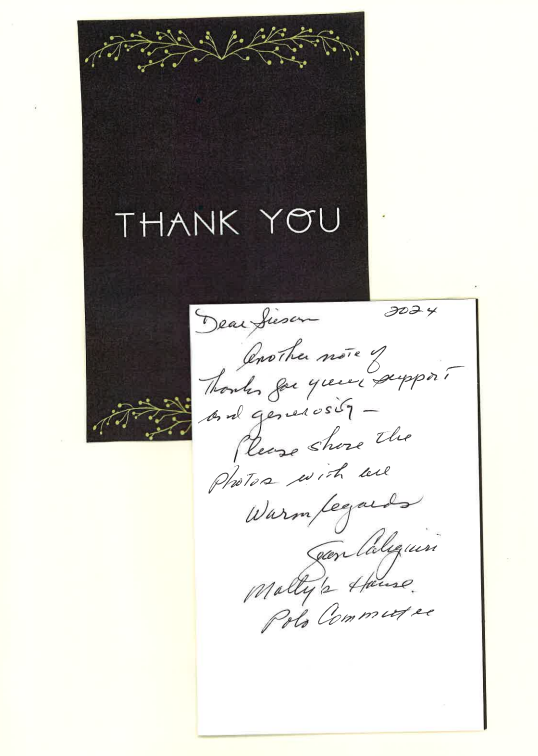 THANK YOU
Dear Susan 2024
Another note of
thanks for your support
and generosity –
Please share the
photos with all
Warm regards
Jean Caliguiri
Molly's House
Polo Committee